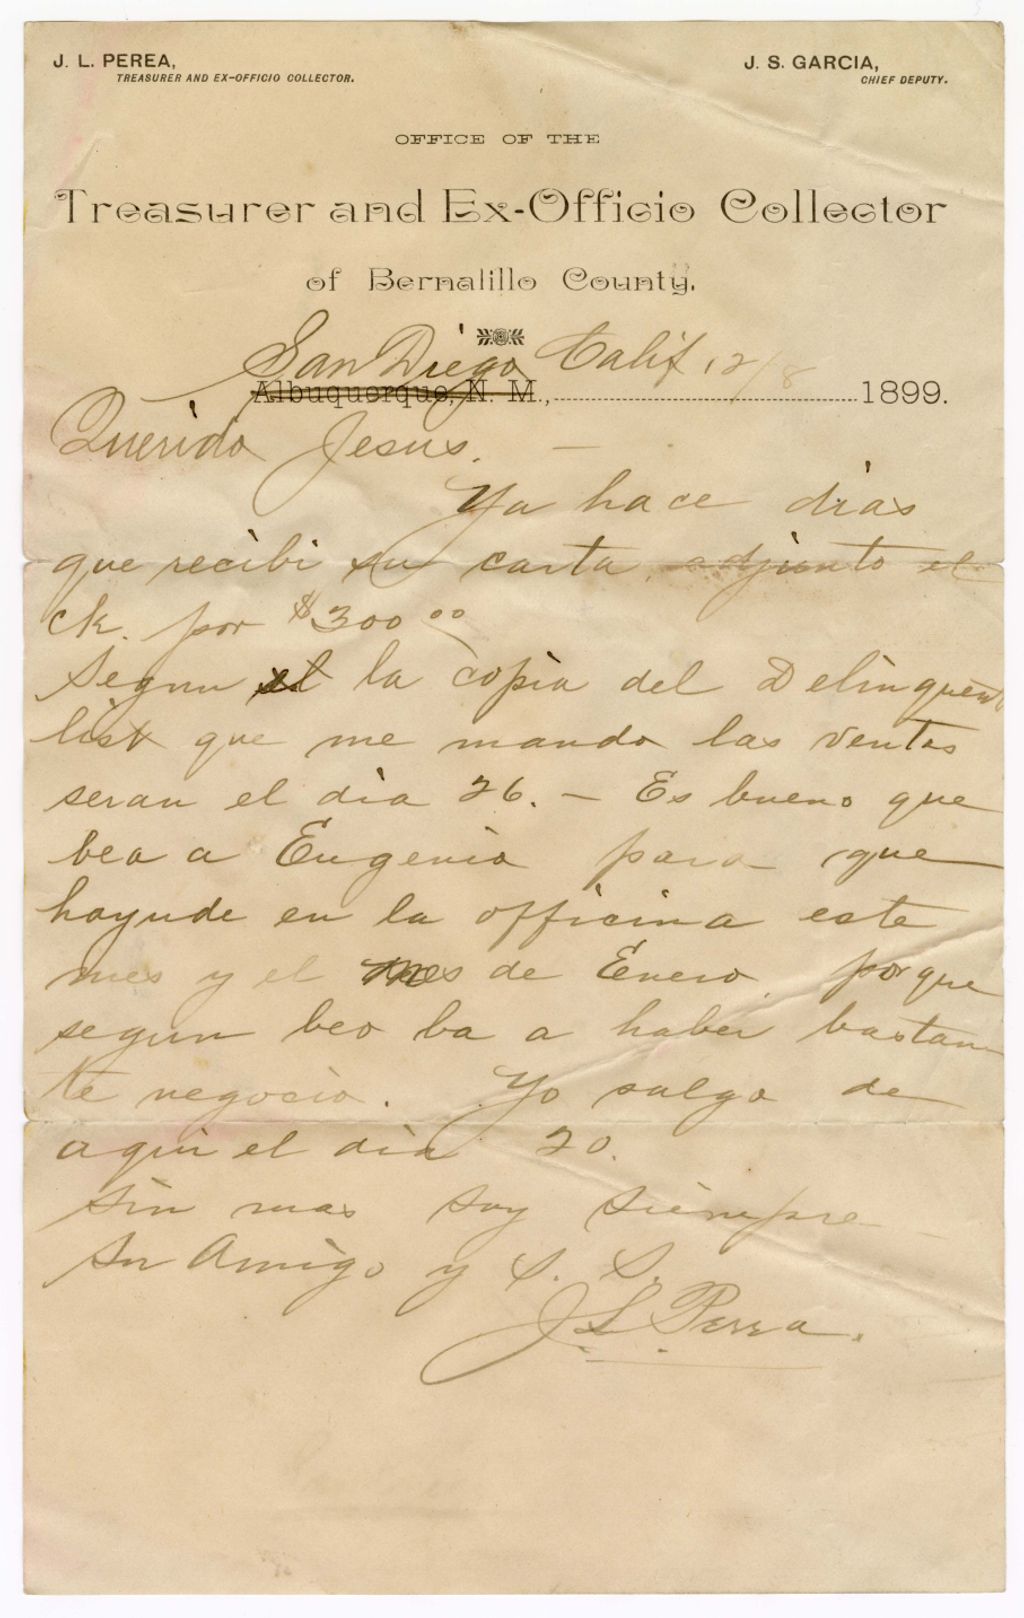 J. L. PEREA,
TREASURER AND EX-OFFICIO COLLECTOR.
J. S. GARCIA,
CHIEF DEPUTY.
OFFICE OF THE
Treasurer and Ex-Officio Collector
of Bernalillo County.
San Diego Calif 12/8
Albuquerque, N. M., 1899.
Querido Jesus. —
Ya hace dias
que recibi su carta, adjunto el
ck. por $300 00
Segun el la copia del Delinquent
list que me mando las ventas
seran el dia 26. — Es bueno que
bea a Eugenio para que
hayude en la officina este
mes y el mes de Enero, porque
segun beo ba a haber bastan
te negocio. Yo salgo de
aqui el dia 20.
Sin mas soy siempre
Su Amigo y S. S.
J. L. Perea.